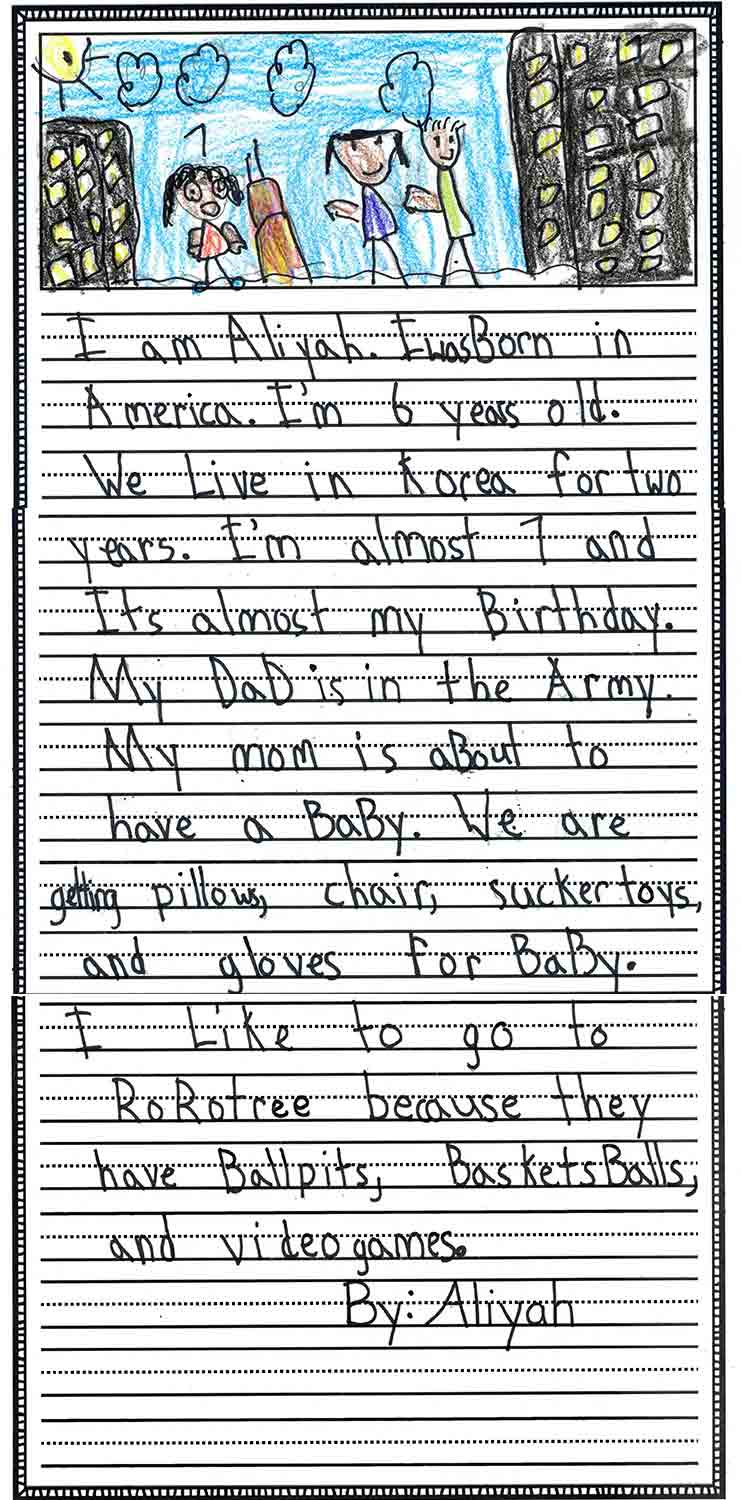 I am Aliyah. I was Born in
America. I'm 6 years old.
We Live in Korea for two
years. I'm almost 7 and
Its almost my Birthday.
My DaD is in the Army.
My mom is aBout to
have a BaBy. We are
getting pillows, chair, sucker toys,
and gloves for BaBy.
I Like to go to
RoRotree because they
have Ballpits, BasketsBalls,
and video games.
By: Aliyah